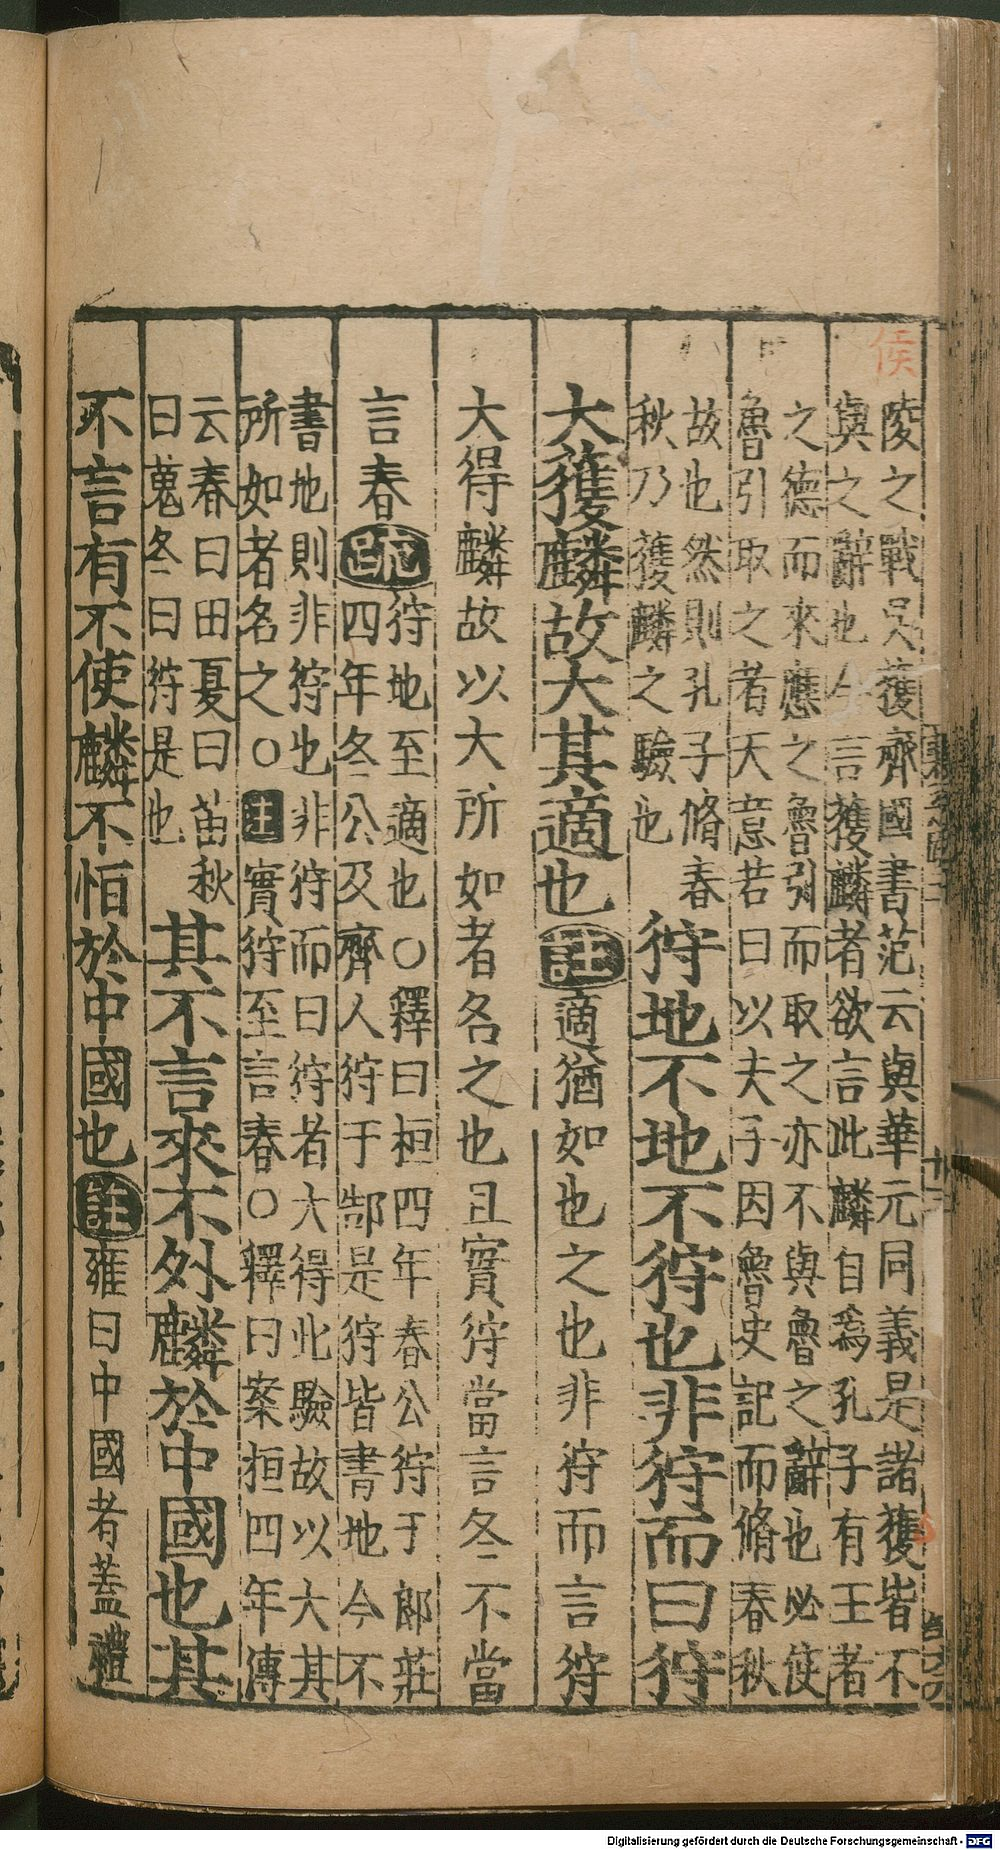 侯
陵之戰吳獲齊國書范云與華元同義是諸獲皆不
與之辭也今言獲麟者欲言此麟自為孔子有王者
之德而來應之魯引而取之亦不與魯之辭也必使
魯引取之者天意若曰以夫子因魯史記而脩春秋
故也然則孔子脩春
秋乃獲麟之驗也
狩地不地不狩也非狩而曰狩
大獲麟故大其適也註適猶如也之也非狩而言狩
大得麟故以大所如者名之也且實狩當言冬不當
言春
疏狩地至適也○釋曰桓四年春公狩于郎莊
四年冬公及齊人狩于郜是狩皆書地今不
書地則非狩也非狩而曰狩者大得此驗故以大其
所如者名之○註實狩至言春○釋曰案桓四年傳
云春曰田夏曰苗秋
曰蒐冬曰狩是也
其不言來不外麟於中國也其
不言有不使麟不恒於中國也註雍曰中國者蓋禮
Digitalisierung gefördert durch die Deutsche Forschungsgemeinschaft - DFG